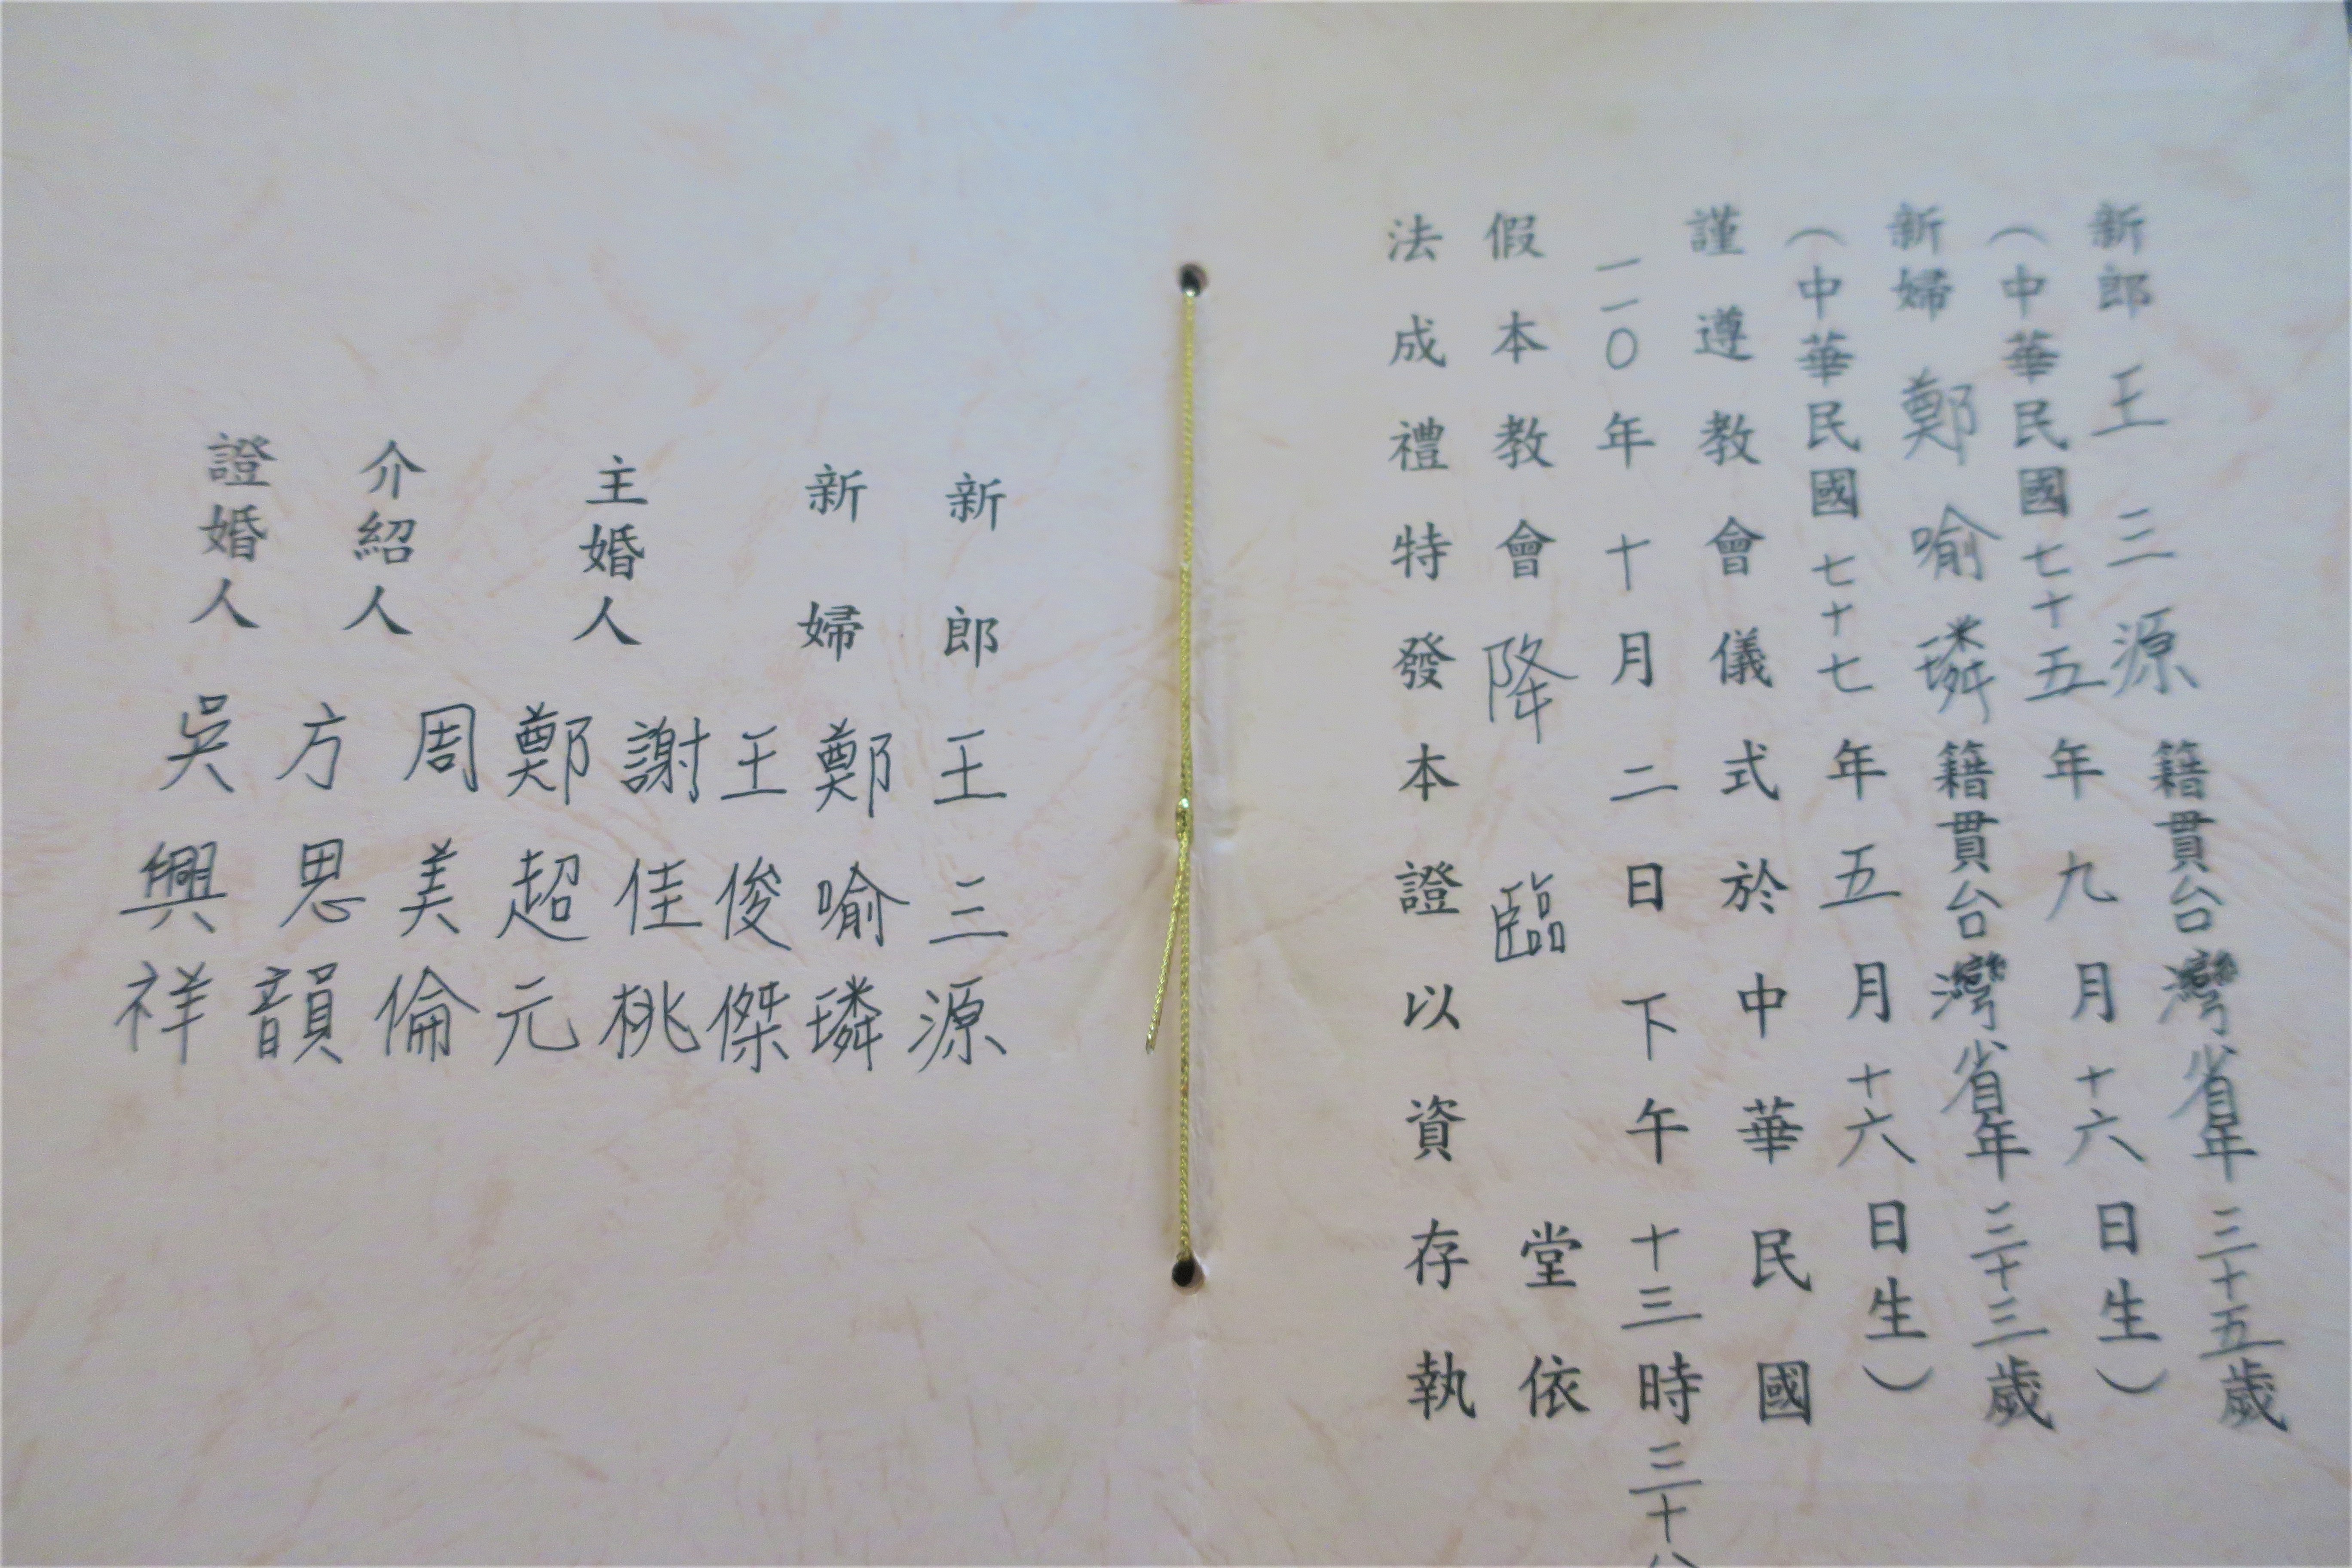 新郎 王三源 籍貫台灣省年三十五歲
（中華民國七十五年九月十六日生）
新婦 鄭喻璘 籍貫台灣省年三十三歲
（中華民國七十七年五月十六日生）
謹遵教會儀式於中華民國
一一〇年十月二日下午十三時三十分
假本教會降臨堂依
法成禮特發本證以資存執
新郎 王三源
新婦 鄭喻璘
主婚人 王俊傑
謝佳桃
鄭超元
介紹人 周美倫
方思韻
證婚人 吳興祥